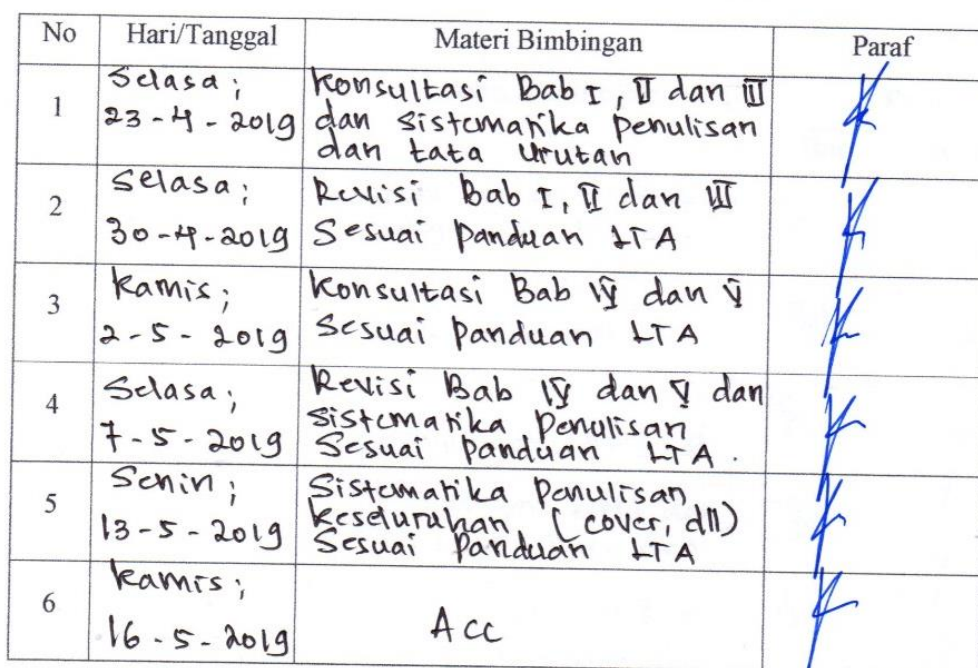 No Hari/Tanggal Materi Bimbingan Paraf
1 Selasa; Konsultasi Bab I, II dan III
23-4-2019 dan sistematika penulisan
dan tata urutan
2 Selasa; Revisi Bab I, II dan III
30-4-2019 Sesuai panduan LTA
3 Kamis; Konsultasi Bab IV dan V
2-5-2019 Sesuai panduan LTA
4 Selasa; Revisi Bab IV dan V dan
7-5-2019 sistematika penulisan
Sesuai panduan LTA.
5 Senin; Sistematika penulisan
13-5-2019 keseluruhan (cover, dll)
Sesuai panduan LTA
6 Kamis;
16-5-2019 Acc